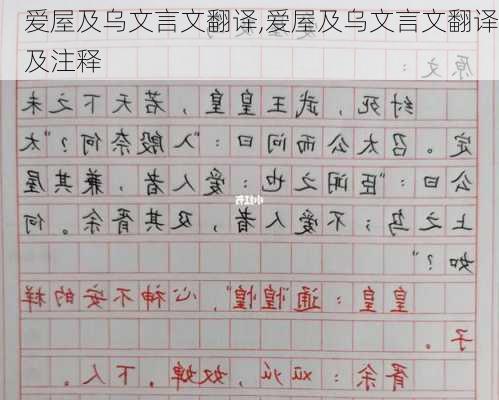 爱屋及乌文言文翻译,爱屋及乌文言文翻译
及注释
原文：
纣死，武王皇皇，若天下之未
定。召太公而问曰：“入殷奈何？”太
公曰：“臣闻之也：爱人者，兼其屋
小红书
上之乌；不爱人者，及其胥余。何
如？”
皇皇：通“惶惶”，心神不安的样
子。
胥余：xū yú，奴婢，下人。